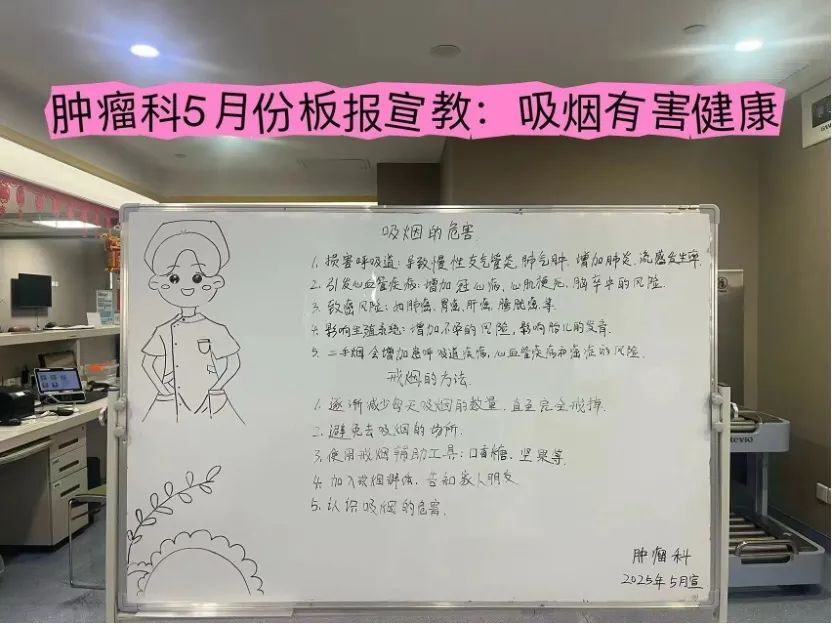 肿瘤科5月份板报宣教：吸烟有害健康
吸烟的危害
1. 损害呼吸道：导致慢性支气管炎、肺气肿、增加肺炎、流感发生率.
2. 引发心血管疾病：增加冠心病、心肌梗死、脑卒中的风险.
3. 致癌风险：如肺癌、胃癌、肝癌、膀胱癌等.
4. 影响生殖系统：增加不孕的风险，影响胎儿的发育.
5. 二手烟会增加患呼吸道疾病，心血管疾病和癌症的风险.
戒烟的方法
1. 逐渐减少每天吸烟的数量，直至完全戒掉.
2. 避免去吸烟的场所.
3. 使用戒烟辅助工具：口香糖、坚果等.
4. 加入戒烟群体，告知家人朋友
5. 认识吸烟的危害.
肿瘤科
2025年5月宣